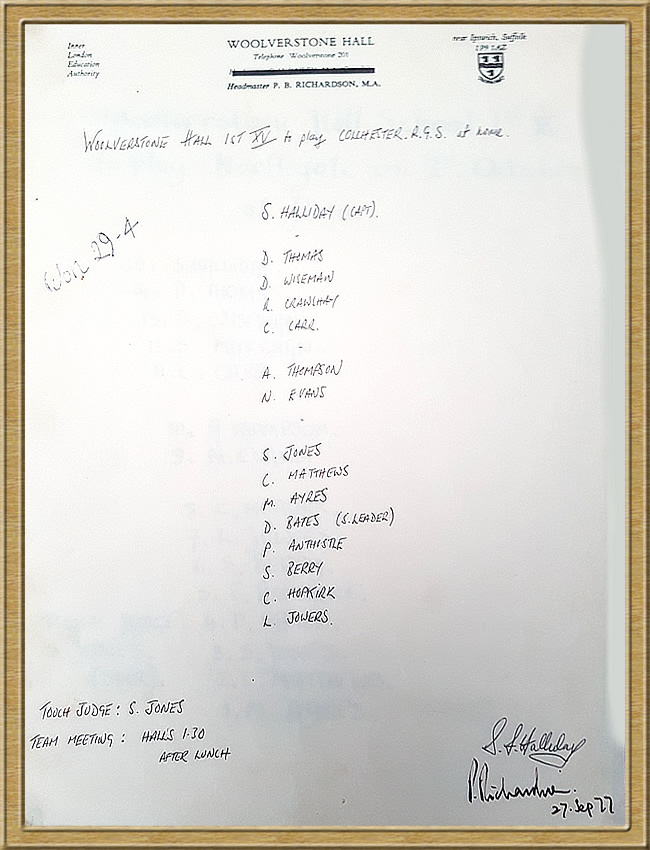 Inner
London
Education
Authority
WOOLVERSTONE HALL
Telephone Woolverstone 201
Headmaster P. B. RICHARDSON, M.A.
near Ipswich, Suffolk
IP9 1AZ
WOOLVERSTONE HALL 1ST XV to play COLCHESTER. R.G.S. at home.
Won 29-4
S. HALLIDAY (CAPT).
D. THOMAS
D. WISEMAN
R. CRAWSHAY
C. CARR.
A. THOMPSON
N. EVANS
S. JONES
C. MATTHEWS
M. AYRES
D. BATES (S.LEADER)
P. ANTHISTLE
S. BERRY
C. HOPKIRK
L. JOWERS.
TOUCH JUDGE: S. JONES
TEAM MEETING: HALLS 1.30
AFTER LUNCH
S. J. Halliday
P. Richardson.
27. Sep 77